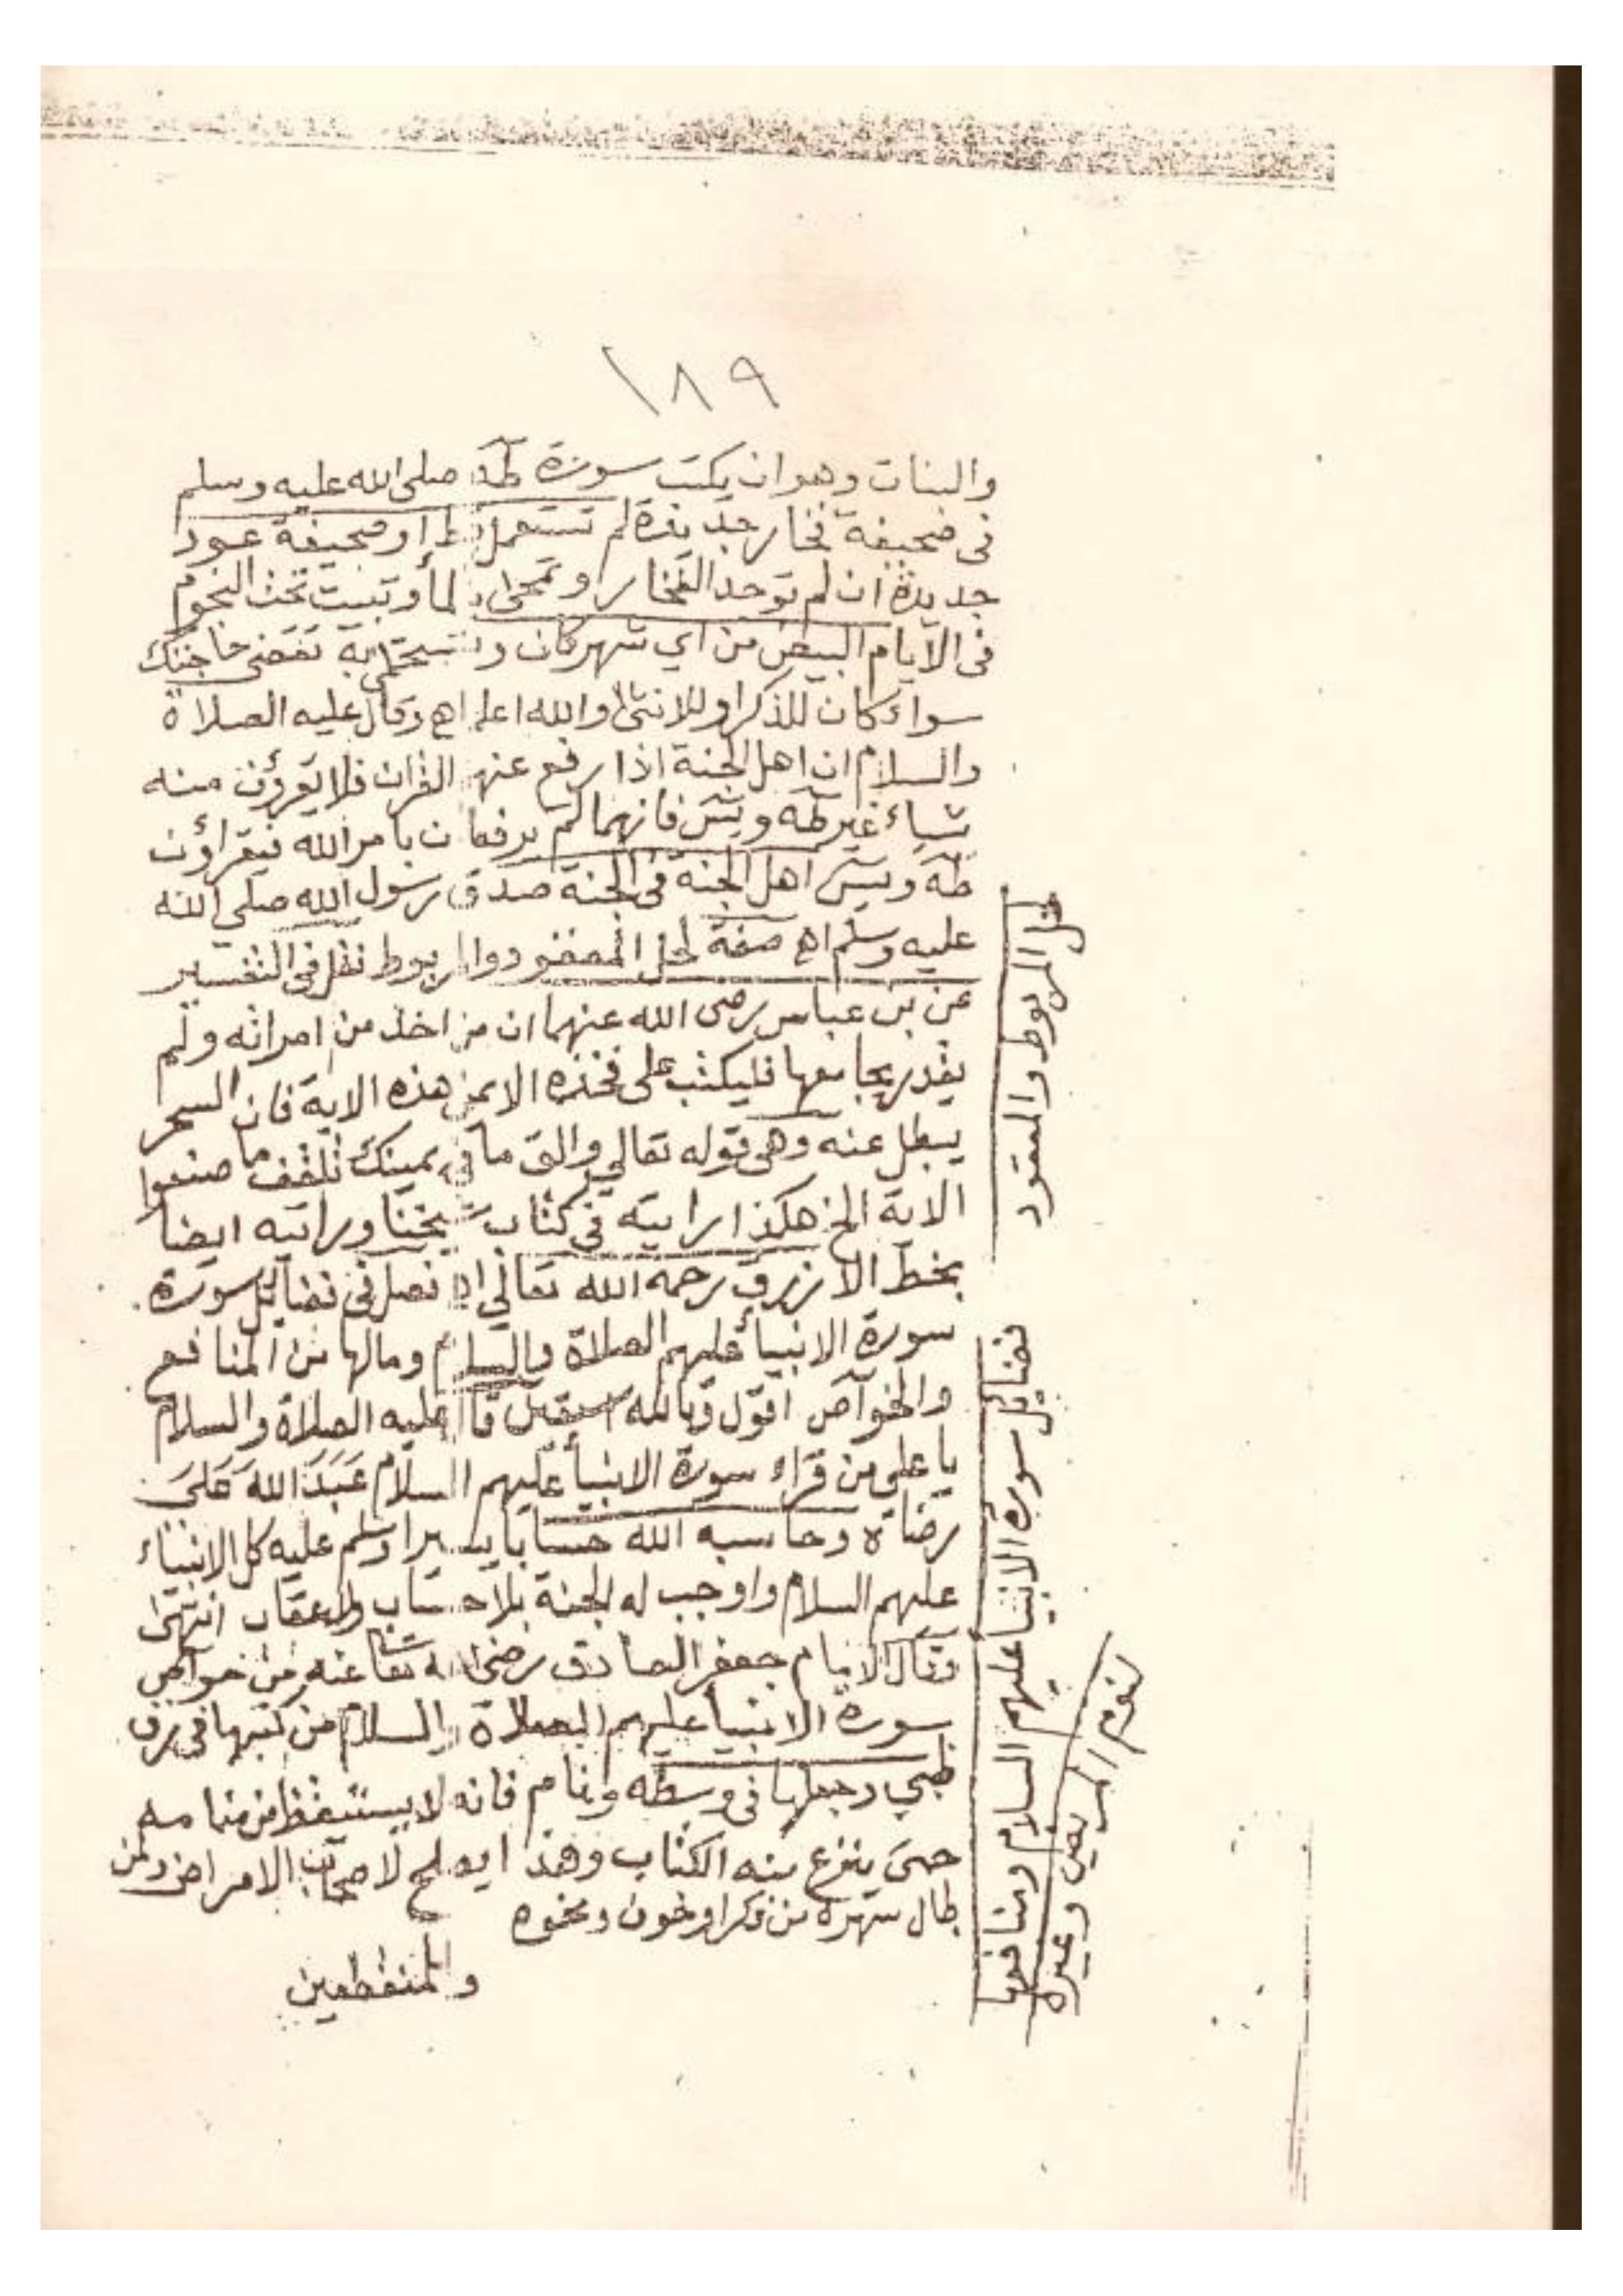 ١٨٩
والبنات وهو ان يكتب سورة طه صلى الله عليه وسلم
فى صحيفة فخار جديدة لم تستعمل قط او صحيفة عود
جديدة ان لم توجد الفخار وتمحى بالمأ وتبيت تحت النجوم
فى الايام البيض من اي شهر كان وتستحمى به تقضى حاجتك
سواء كان للذكر او للانثى والله اعلم اهـ وقال عليه الصلاة
والسلام ان اهل الجنة اذا رفع عنهم القران فلا يقرؤن منه
شياء غير طه ويس فانهما لم يرفعان بامر الله فيقراؤن
طه ويس اهل الجنة فى الجنة صدق رسول الله صلى الله
عليه وسلم اهـ صفة لحل المعقود والمربوط نقل فى التفسير
عن بن عباس رضى الله عنهما ان من اخذ من امراته ولم
يقدر يجامعها فليكتب على فخذه الايمن هذه الاية فان السحر
يبطل عنه وهى قوله تعالي والق ما في يمينك تلقف ما صنعوا
الاية الخ هكذا رايته فى كتاب شيخنا ورايته ايضا
بخط الازرق رحمه الله تعالي اهـ فصل فى فضايل سورة
سورة الانبيأ عليهم الصلاة والسلام ومالها من المنافع
والخواص اقول وبالله استعين قال عليه الصلاة والسلام
يا علي من قراء سورة الانبيأ عليهم السلام عَبَدَ اللهَ عَلىَ
رضاه وحاسبه الله حسابا يسيرا وسلم عليه كل الانبياء
عليهم السلام واوجب له الجنة بلا حساب ولا عقاب انتهى
وقال الامام جعفر الصادق رضى الله تعا عنه ومن خواص
سورة الانبيأ عليهم الصلاة والسلام من كتبها فى رق
ظبي وجعلها فى وسطه ونام فانه لا يستيقظ من منامه
حتى ينزع منه الكتاب وهذا يصلح لاصحاب الامراض ولمن
طال سهره من فكر او خوف ونحوه
والمنقطعين
لحل المربوط والمعقود
فضايل سورة الانبيا عليهم السلام ومنافعها
لنوم المريض وغيره